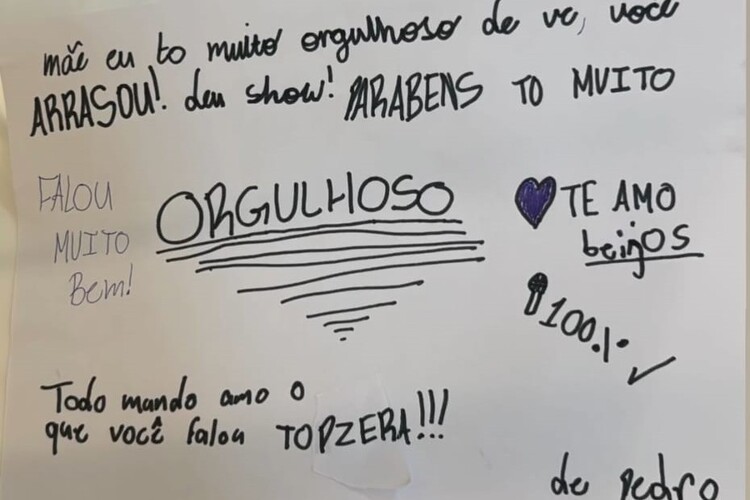 mãe eu to muito orgulhoso de vc, você
ARRASOU! deu show! PARABENS TO MUITO
ORGULHOSO
FALOU
MUITO
Bem!
TE AMO
beijos
100%
Todo mando amo o
que você falou TOPZERA!!!
de Pedro